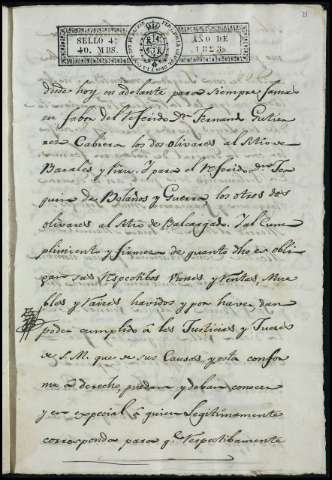 SELLO 4º AÑO DE
40. MRS. 1823.
desde hoy en adelante para siempre jamas
en favor del referido Dn. Fernando Gutier
rez Cabrera los dos olivares al sitio de
y para el referido Dn.
de Bolaños y Guerra los otros dos
olivares al sitio de Y al cum
plimiento y firmeza de quanto dho es obli
gan sus respectibos vienes y rentas, mue
bles y raices havidos y por haver dan
poder cumplido á los Justicias y Jueces
de S. M. que de sus Causas, y esta confor
me á derecho, puedan y deban conocer
y en especial á quien legitimamente
corresponda para qe. respectibamente